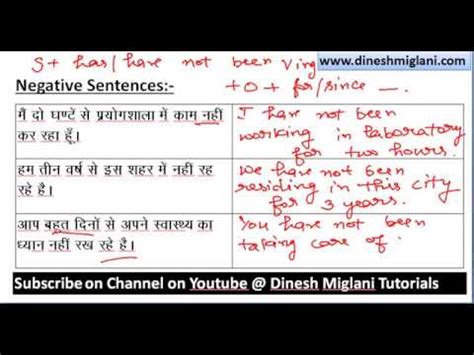 S+ has/have not been Ving
www.dineshmiglani.com
Negative Sentences:-
+O+ for/since —.
मैं दो घण्टें से प्रयोगशाला में काम नहीं
कर रहा हूँ।
I have not been
working in laboratory
for two hours.
हम तीन वर्ष से इस शहर में नहीं रह
रहे है।
We have not been
residing in this city
for 3 years.
आप बहुत दिनों से अपने स्वास्थ्य का
ध्यान नहीं रख रहे है।
You have not been
taking care of
Subscribe on Channel on Youtube @ Dinesh Miglani Tutorials